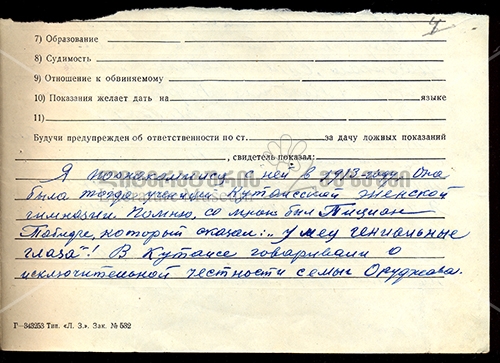 4
7) Образование
8) Судимость
9) Отношение к обвиняемому
10) Показания желает дать на языке
11)
Будучи предупрежден об ответственности по ст. за дачу ложных показаний
, свидетель показал:
Я познакомился с ней в 1913 году. Она
была тогда ученицей Кутаисской женской
гимназии. Помню, со мной был Тициан
Табидзе, который сказал: „У нее гениальные
глаза"! В Кутаисе говаривали о
исключительной честности семьи Оруджева.
Г—343253 Тип. «Л. З.». Зак. № 532